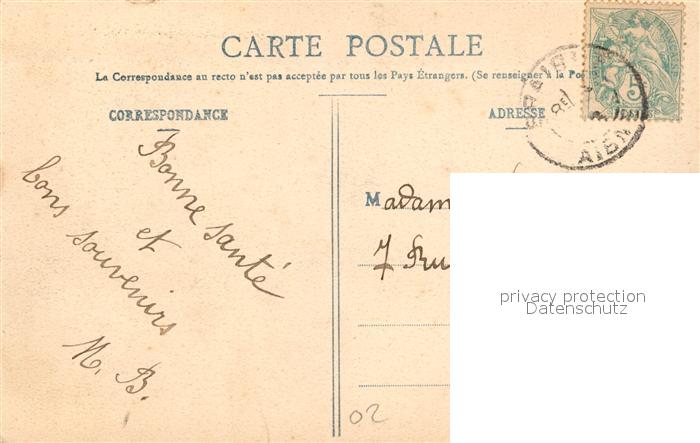 CARTE POSTALE
La Correspondance au recto n'est pas acceptée par tous les Pays Étrangers. (Se renseigner à la Po
CORRESPONDANCE
ADRESSE
5
AIN
Bonne santé
et
bons souvenirs
M. B.
Madam
7 Ru
02
privacy protection
Datenschutz